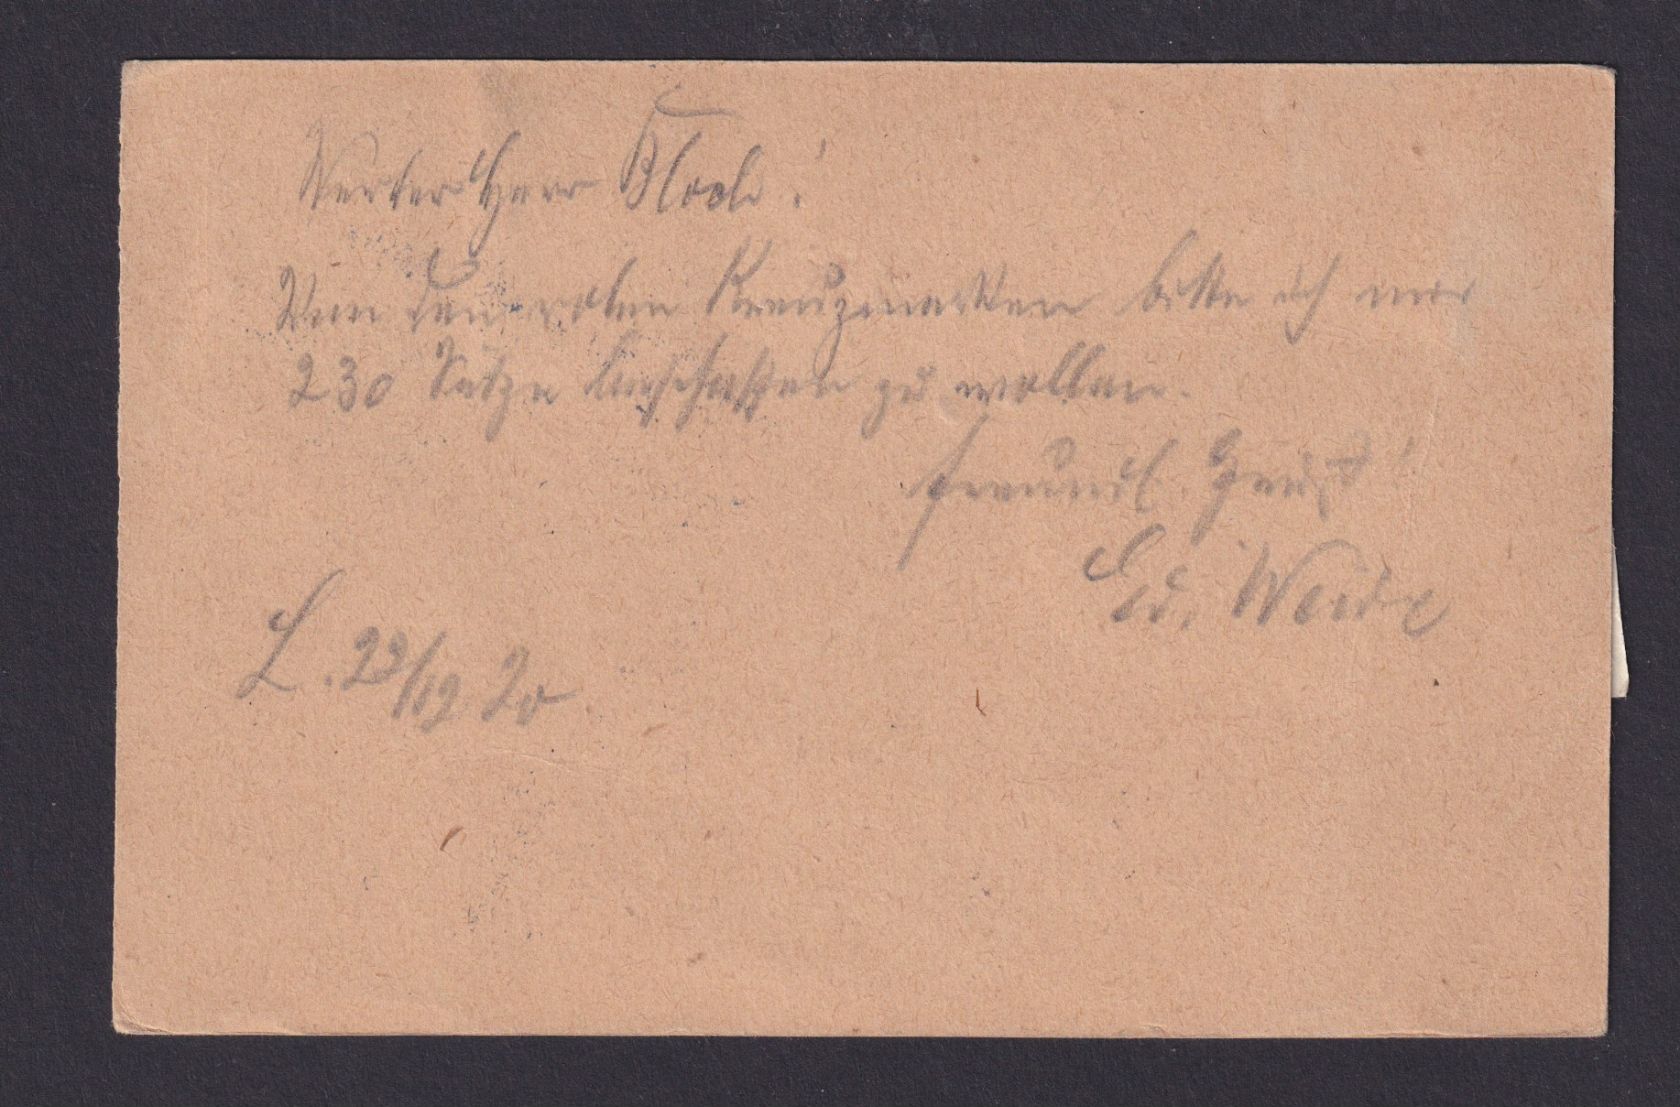 Werter Herr
Von den roten Kreuzmarken bitte ich mir
230 Sätze zu wollen.
Freundl. Gruß!
Ed. Weide
L. 29/12. 20